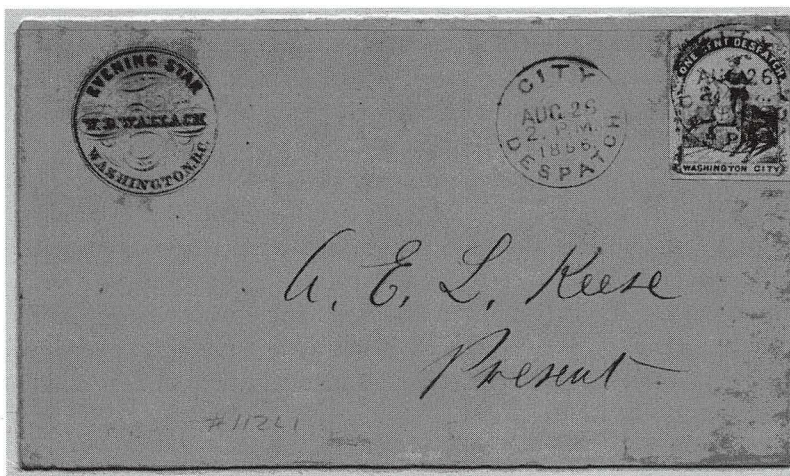 EVENING STAR
W.D. WALLACH
WASHINGTON, D.C.
CITY
AUG. 26
2. P.M.
1856
DESPATCH
ONE CENT DESPATCH
AUG 26
WASHINGTON CITY
A. E. L. Keese
Present
#112L1